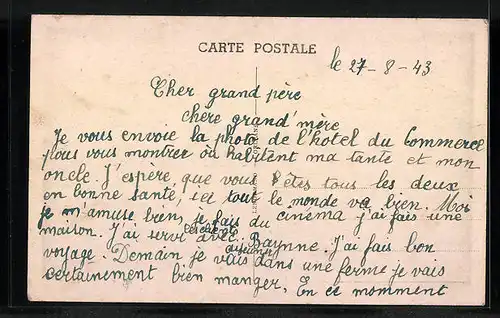 CARTE POSTALE
le 27-8-43
Cher grand père
chère grand'mère
Je vous envoie la photo de l'hotel du Commerce
pous vous montrer où habitent ma tante et mon
oncle. J'espère que vous êtes tous les deux
en bonne santé, ici tout le monde va bien. Moi
je m'amuse bien, je fais du cinéma j'ai fais une
maison. J'ai servi avec Baynne. J'ai fais bon
voyage. Demain je vais dans une ferme je vais
certainement bien manger. En ce momment